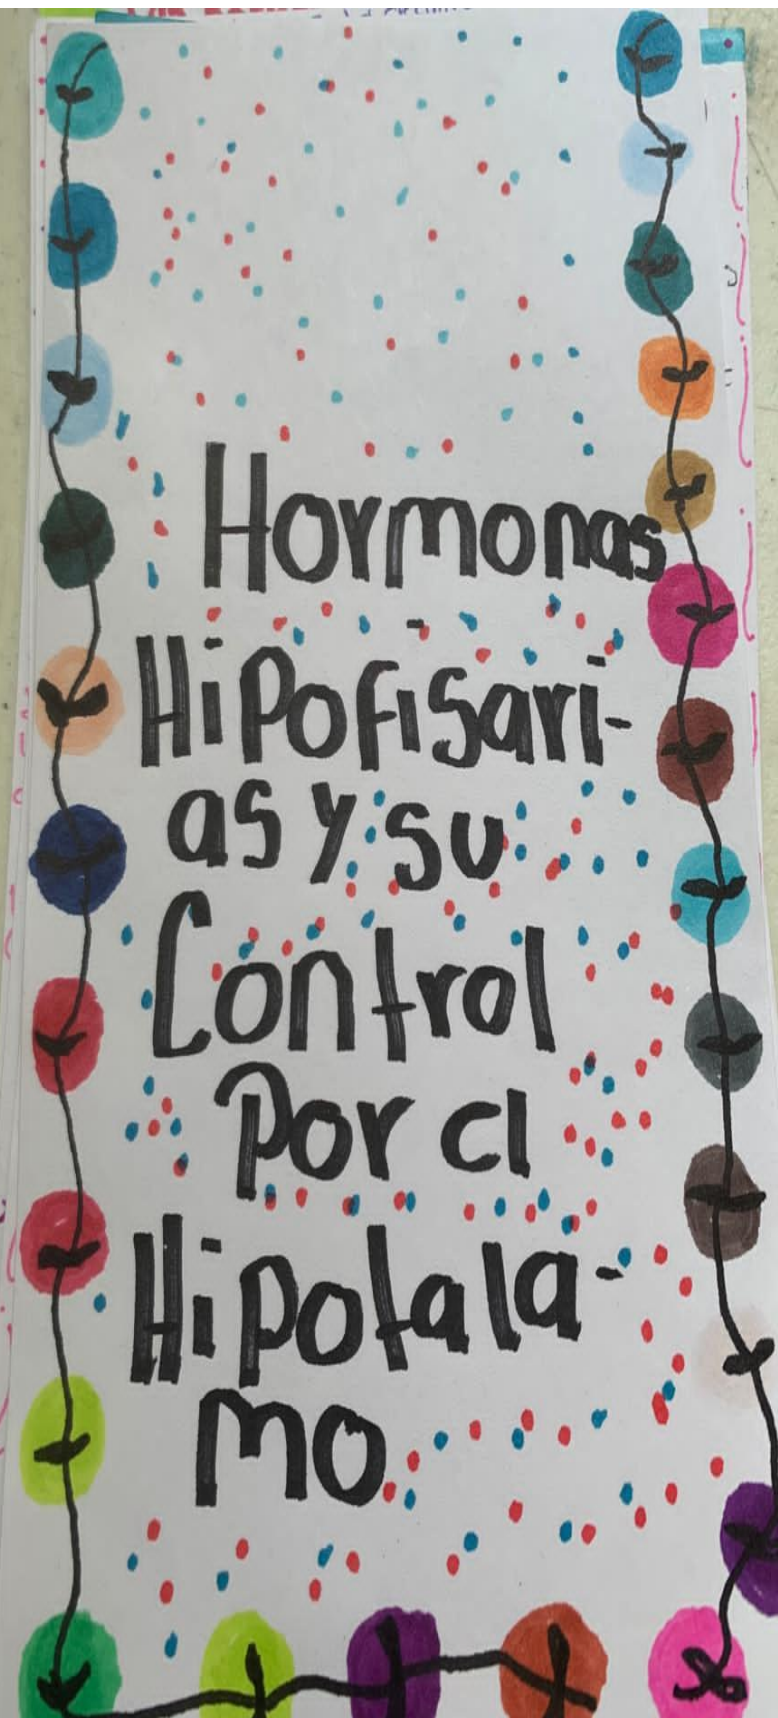 Hormonas
Hipofisari-
as y su
Control
Por el
Hipotala-
mo